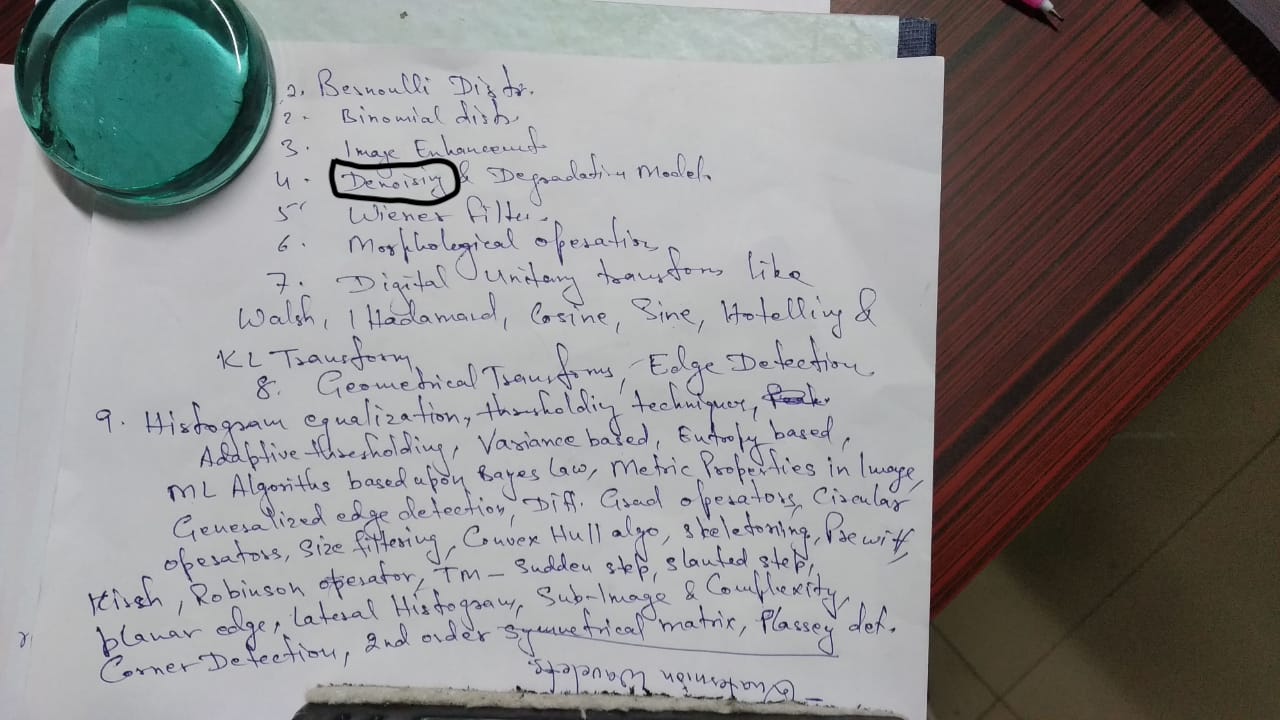 2. Bernoulli Distr.
2. Binomial distr
3. Image Enhancement
4. Denoising & Degradation Model.
5. Wiener filter.
6. Morphological operation
7. Digital Unitary transforms like
Walsh, Hadamard, Cosine, Sine, Hotelling &
KL Transform
8. Geometrical Transforms, Edge Detection
9. Histogram equalization, thresholding techniques,
Adaptive thresholding, Variance based, Entropy based,
ML Algoriths based upon Bayes law, Metric Properties in Image,
Generalized edge detection, Diff. Grad operators, Circular
operators, Size filtering, Convex Hull algo, skeletoning, Prewitt,
Kirsh, Robinson operator, TM – Sudden step, slanted step,
planar edge, Lateral Histogram, Sub-Image & Complexity,
Corner Detection, 2nd order symmetrical matrix, Plassey det.
– Quaternion Wavelets